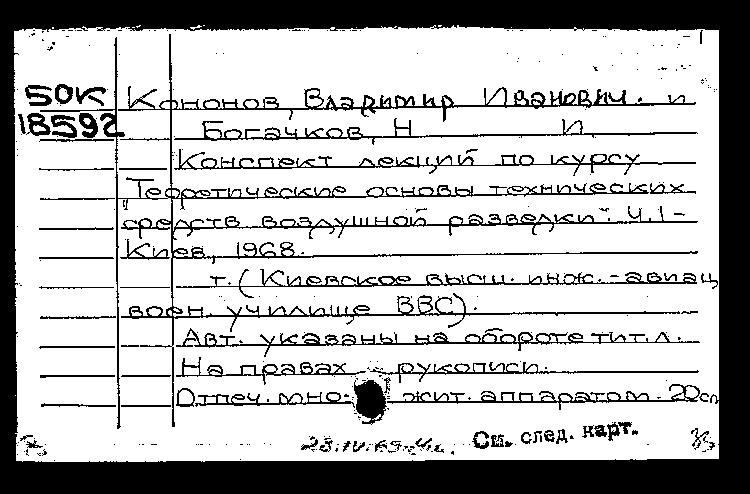 50К Кононов, Владимир Иванович. и
18592 Богачков, Н И.
Конспект лекций по курсу
"Теоретические основы технических
средств воздушной разведки". Ч.1-
Киев, 1968.
т. (Киевское высш. инж.-авиац
воен. училище ВВС).
Авт. указаны на обороте тит.л.
На правах рукописи.
Отпеч. мно- жит. аппаратом. 20сл
См. след. карт.